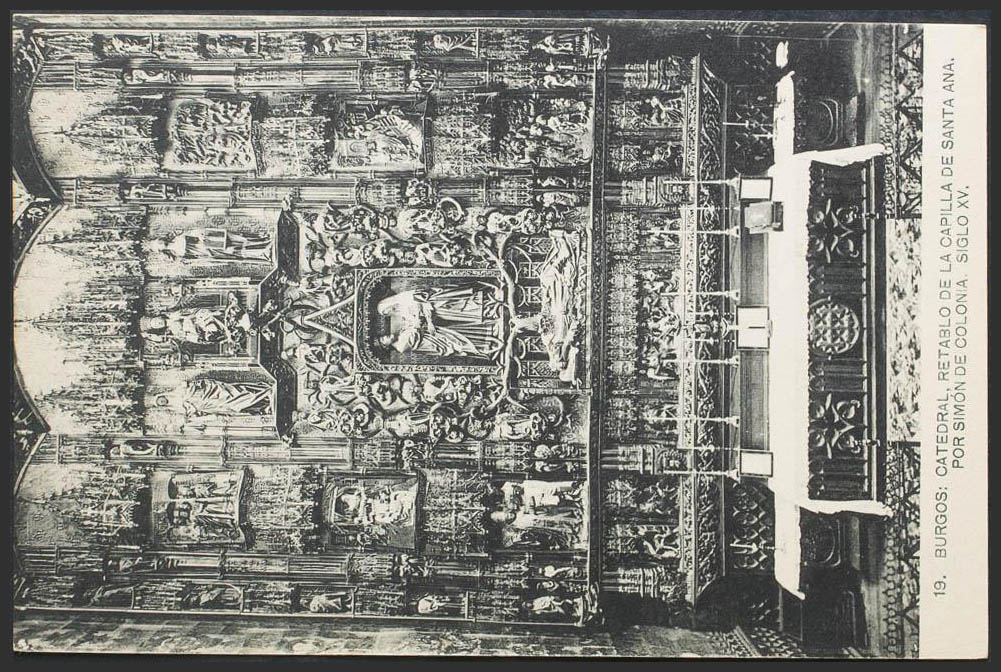 19. BURGOS: CATEDRAL, RETABLO DE LA CAPILLA DE SANTA ANA.
POR SIMÓN DE COLONIA. SIGLO XV.